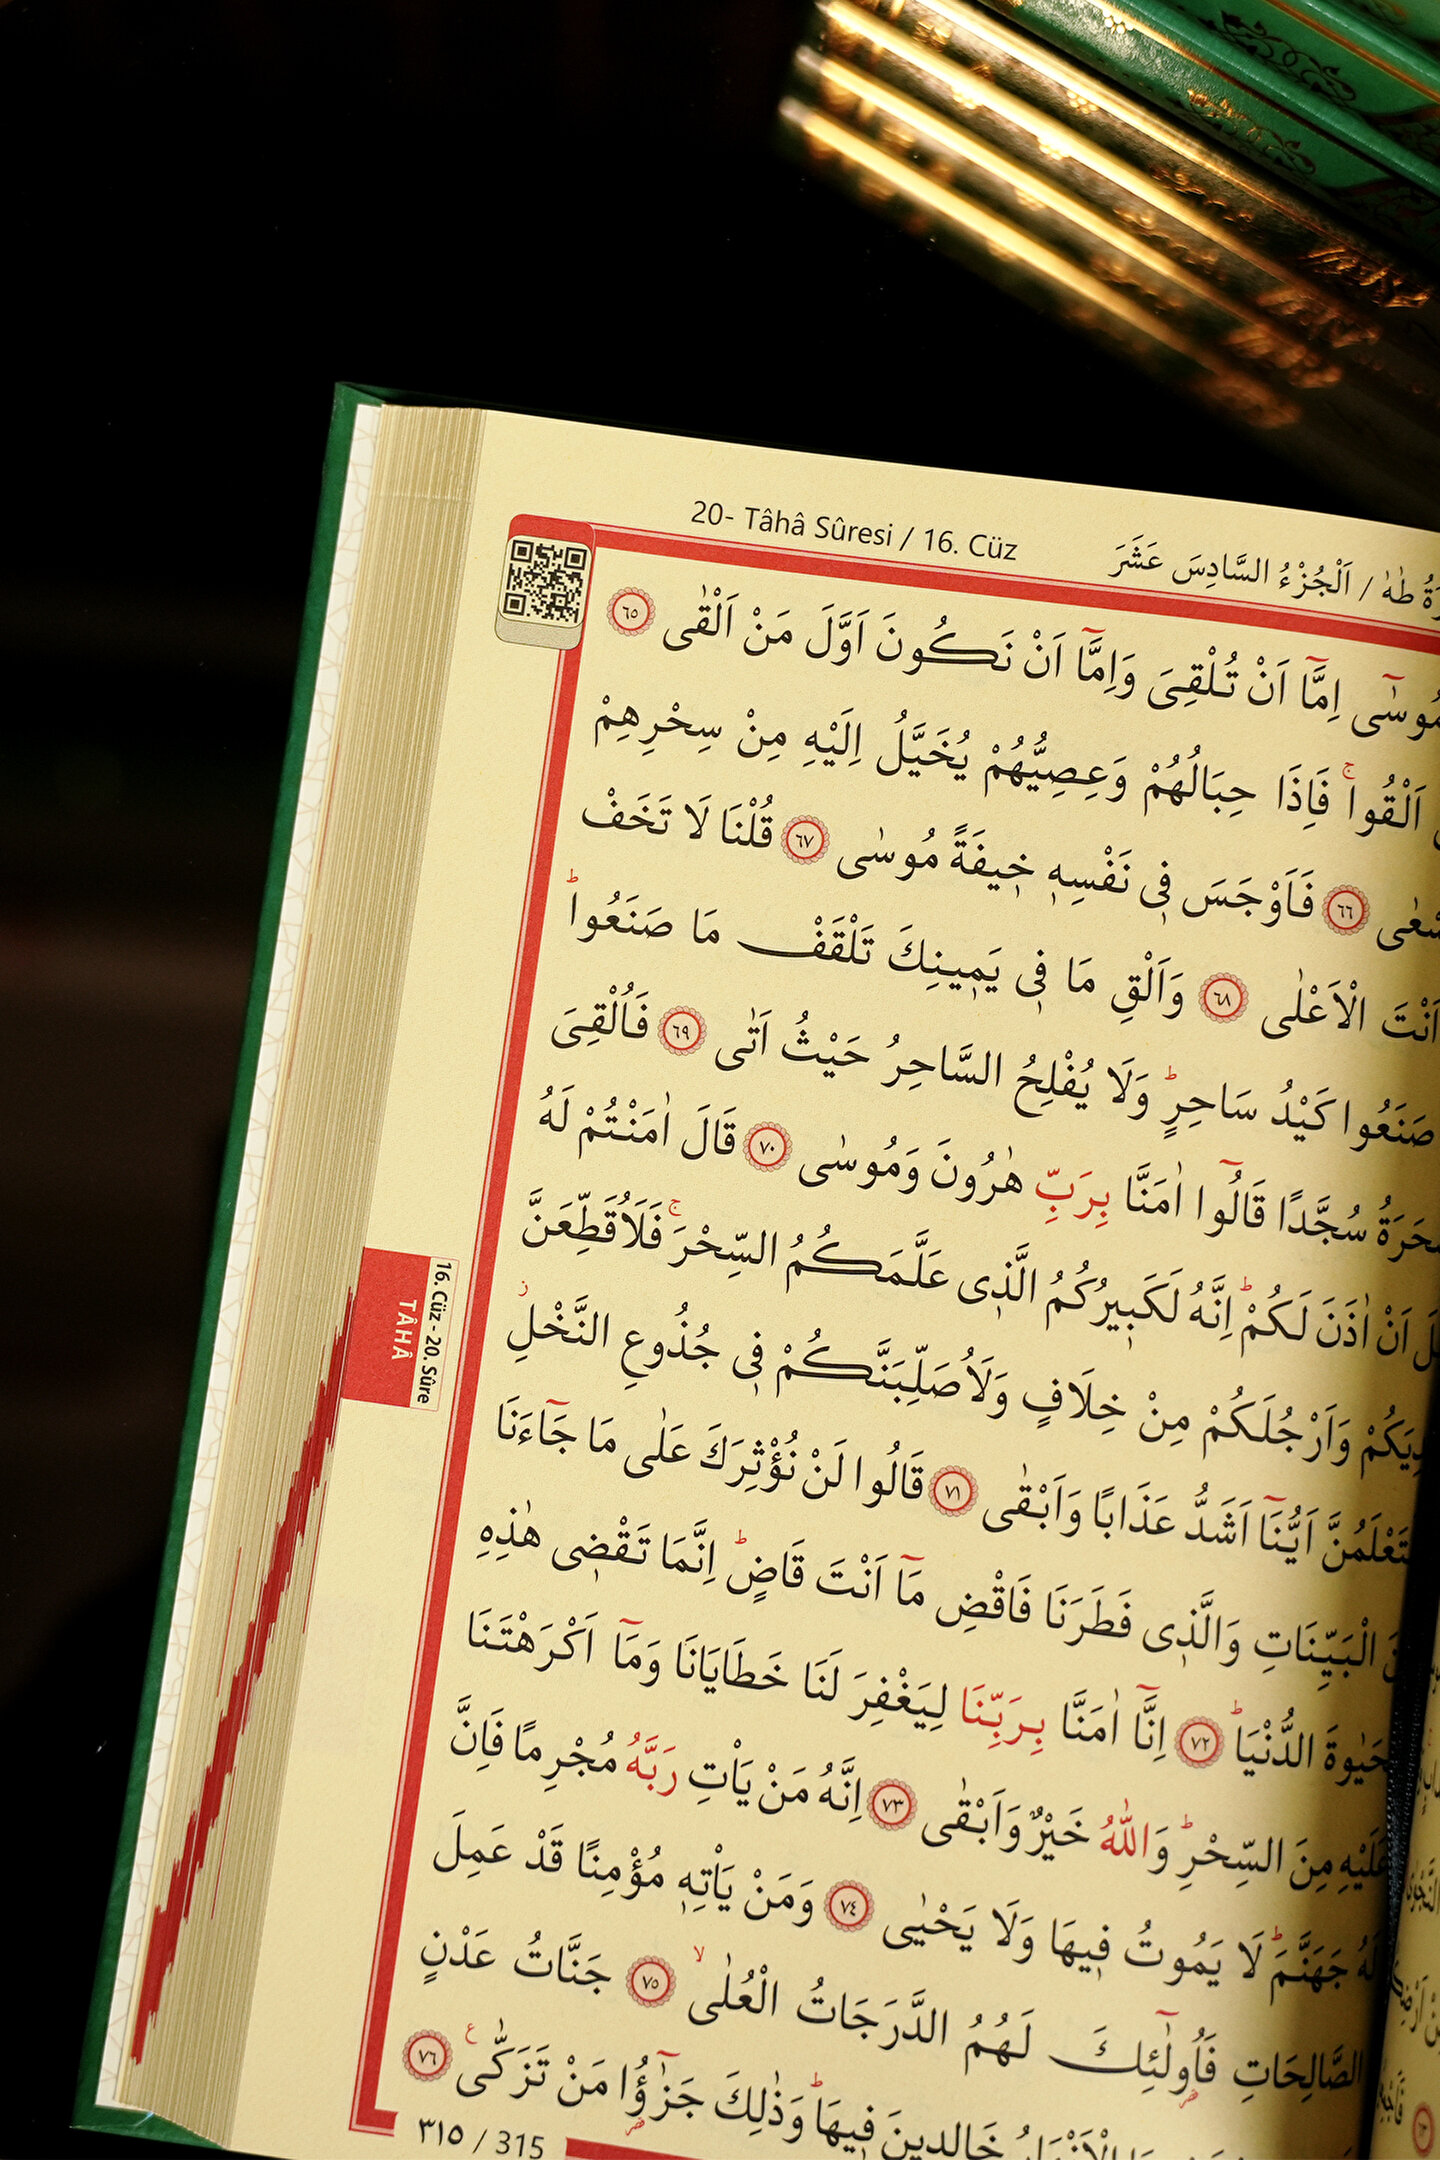 20- Tâhâ Sûresi / 16. Cüz
طٰهٰ / اَلْجُزْءُ السَّادِسَ عَشَرَ
مُوسٰٓى اِمَّٓا اَنْ تُلْقِىَ وَاِمَّٓا اَنْ نَكُونَ اَوَّلَ مَنْ اَلْقٰى ﴿٦٥﴾
اَلْقُواۚ فَاِذَا حِبَالُهُمْ وَعِصِيُّهُمْ يُخَيَّلُ اِلَيْهِ مِنْ سِحْرِهِمْ
﴿٦٦﴾ فَاَوْجَسَ فٖى نَفْسِهٖ خٖيفَةً مُوسٰى ﴿٦٧﴾ قُلْنَا لَا تَخَفْ
اَنْتَ الْاَعْلٰى ﴿٦٨﴾ وَاَلْقِ مَا فٖى يَمٖينِكَ تَلْقَفْ مَا صَنَعُواؕ
صَنَعُوا كَيْدُ سَاحِرٍؕ وَلَا يُفْلِحُ السَّاحِرُ حَيْثُ اَتٰى ﴿٦٩﴾ فَاُلْقِىَ
سُجَّدًا قَالُٓوا اٰمَنَّا بِرَبِّ هٰرُونَ وَمُوسٰى ﴿٧٠﴾ قَالَ اٰمَنْتُمْ لَهُ
اَنْ اٰذَنَ لَكُمْؕ اِنَّهُ لَكَبٖيرُكُمُ الَّذٖى عَلَّمَكُمُ السِّحْرَۚ فَلَاُقَطِّعَنَّ
وَاَرْجُلَكُمْ مِنْ خِلَافٍ وَلَاُصَلِّبَنَّكُمْ فٖى جُذُوعِ النَّخْلِؗ
اَيُّنَٓا اَشَدُّ عَذَابًا وَاَبْقٰى ﴿٧١﴾ قَالُوا لَنْ نُؤْثِرَكَ عَلٰى مَا جَٓاءَنَا
الْبَيِّنَاتِ وَالَّذٖى فَطَرَنَا فَاقْضِ مَٓا اَنْتَ قَاضٍؕ اِنَّمَا تَقْضٖى هٰذِهِ
الدُّنْيَاؕ ﴿٧٢﴾ اِنَّٓا اٰمَنَّا بِرَبِّنَا لِيَغْفِرَ لَنَا خَطَايَانَا وَمَٓا اَكْرَهْتَنَا
عَلَيْهِ مِنَ السِّحْرِؕ وَاللّٰهُ خَيْرٌ وَاَبْقٰى ﴿٧٣﴾ اِنَّهُ مَنْ يَاْتِ رَبَّهُ مُجْرِمًا فَاِنَّ
لَهُ جَهَنَّمَؕ لَا يَمُوتُ فٖيهَا وَلَا يَحْيٰى ﴿٧٤﴾ وَمَنْ يَاْتِهٖ مُؤْمِنًا قَدْ عَمِلَ
الصَّالِحَاتِ فَاُو۬لٰٓئِكَ لَهُمُ الدَّرَجَاتُ الْعُلٰىۙ ﴿٧٥﴾ جَنَّاتُ عَدْنٍ
الْاَنْهَارُ خَالِدٖينَ فٖيهَاؕ وَذٰلِكَ جَزٰٓؤُ۬ا مَنْ تَزَكّٰى ﴿٧٦﴾ ع
٣١٥ / 315
16. Cüz - 20. Sûre
TÂHÂ